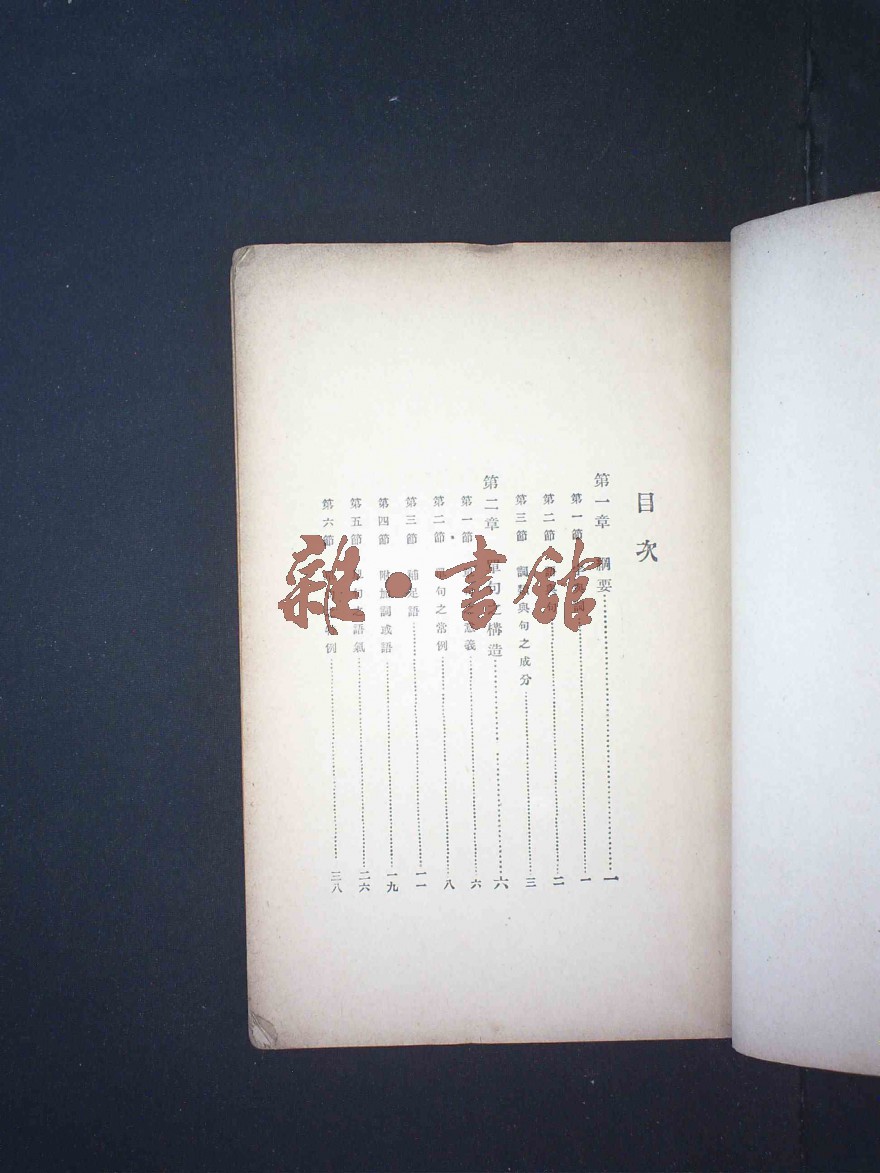 目次
第一章 綱要……一
第一節 詞……一
第二節 句……二
第三節 詞類與句之成分……三
第二章 單句之構造……六
第一節 意義……六
第二節 單句之常例……八
第三節 補足語……一一
第四節 附加詞或語……一九
第五節 單句之語氣……二六
第六節 例……三八
雜·書館